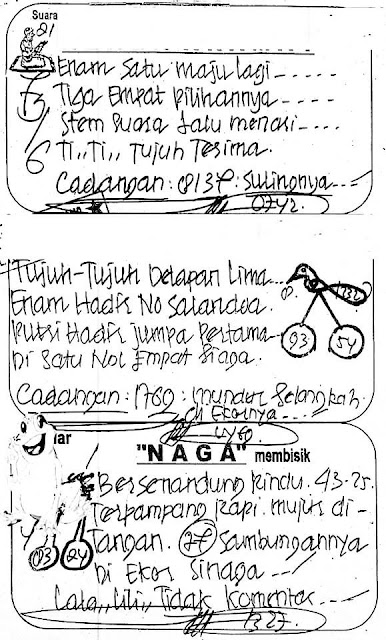 Suara
21
Enam Satu maju lagi - - - -
Tiga Empat pilihannya - - - -
Stem Suara lalu menari - - - -
Ti,, Ti,, Tujuh Terima.
Cadangan : 8137 : Sulingnya - - -
0742.
Tujuh-Tujuh Delapan Lima
Enam Hadir No
Putri Hadir jumpa Pertama
Di Satu Nol Empat Siaga.
93 54
Cadangan : 1760 : mundur Selangkah.
Di Ekornya - - -
iar
"NAGA" membisik
Bersenandung Rindu. 43-25.
Terpampang Rapi mujur di -
Tangan. 27 Sambungannya
Di Ekor Sinaga - - -
93 24
Lala,, Lili,, Tidak Komentar - - -
1327.